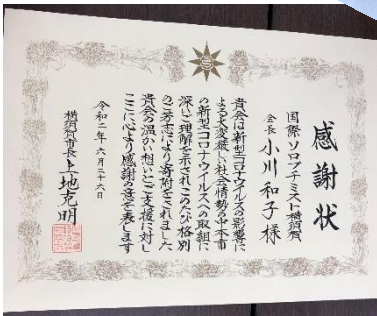 感謝状
国際ソロプチミスト横須賀
会長 小川和子様
貴会は新型コロナウイルスの影響に
よる大変厳しい社会情勢の中本市
の新型コロナウイルスへの取組に
深いご理解を示されこのたび格別
のご芳志により寄附をされました
貴会の温かい想いとご支援に対し
ここに心より感謝の意を表します
令和二年六月二十六日
横須賀市長 上地克明